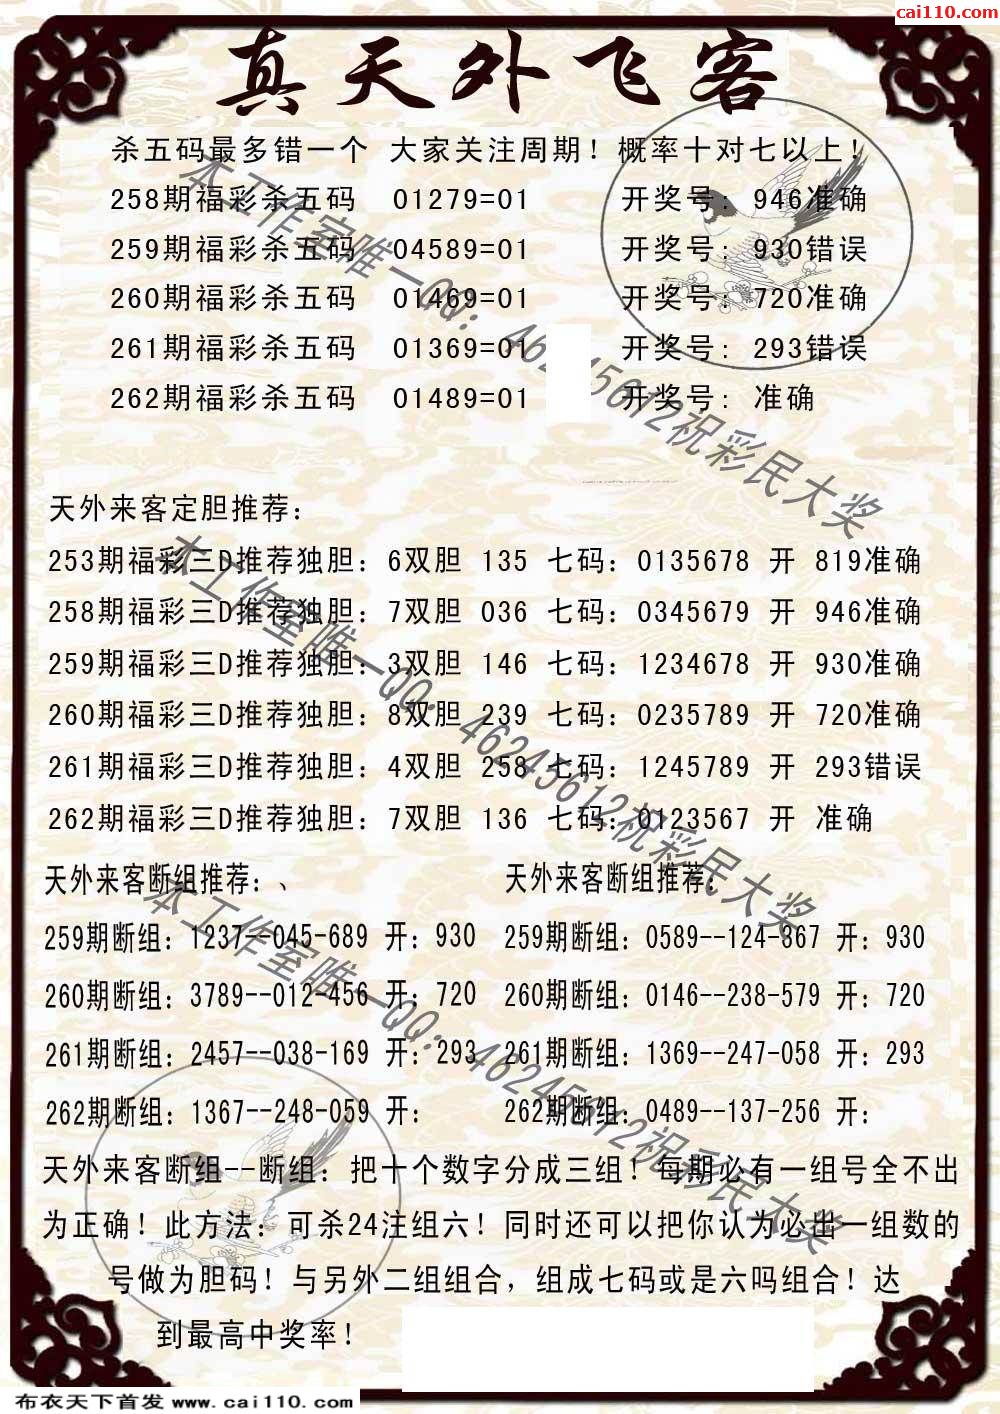 cai110.com
真天外飞客
杀五码最多错一个 大家关注周期！概率十对七以上！
258期福彩杀五码 01279=01 开奖号：946准确
259期福彩杀五码 04589=01 开奖号：930错误
260期福彩杀五码 01469=01 开奖号：720准确
261期福彩杀五码 01369=01 开奖号：293错误
262期福彩杀五码 01489=01 开奖号：准确
本工作室唯一QQ：46245612祝彩民大奖
天外来客定胆推荐：
253期福彩三D推荐独胆：6双胆 135 七码：0135678 开 819准确
258期福彩三D推荐独胆：7双胆 036 七码：0345679 开 946准确
259期福彩三D推荐独胆：3双胆 146 七码：1234678 开 930准确
260期福彩三D推荐独胆：8双胆 239 七码：0235789 开 720准确
261期福彩三D推荐独胆：4双胆 258 七码：1245789 开 293错误
262期福彩三D推荐独胆：7双胆 136 七码：0123567 开 准确
本工作室唯一QQ：46245612祝彩民大奖
天外来客断组推荐：、 天外来客断组推荐：
259期断组：1237--045-689 开：930 259期断组：0589--124-367 开：930
260期断组：3789--012-456 开：720 260期断组：0146--238-579 开：720
261期断组：2457--038-169 开：293 261期断组：1369--247-058 开：293
262期断组：1367--248-059 开： 262期断组：0489--137-256 开：
本工作室唯一QQ：46245612祝彩民大奖
天外来客断组--断组：把十个数字分成三组！每期必有一组号全不出
为正确！此方法：可杀24注组六！同时还可以把你认为必出一组数的
号做为胆码！与另外二组组合，组成七码或是六吗组合！达
到最高中奖率！
布衣天下首发 www.cai110.com